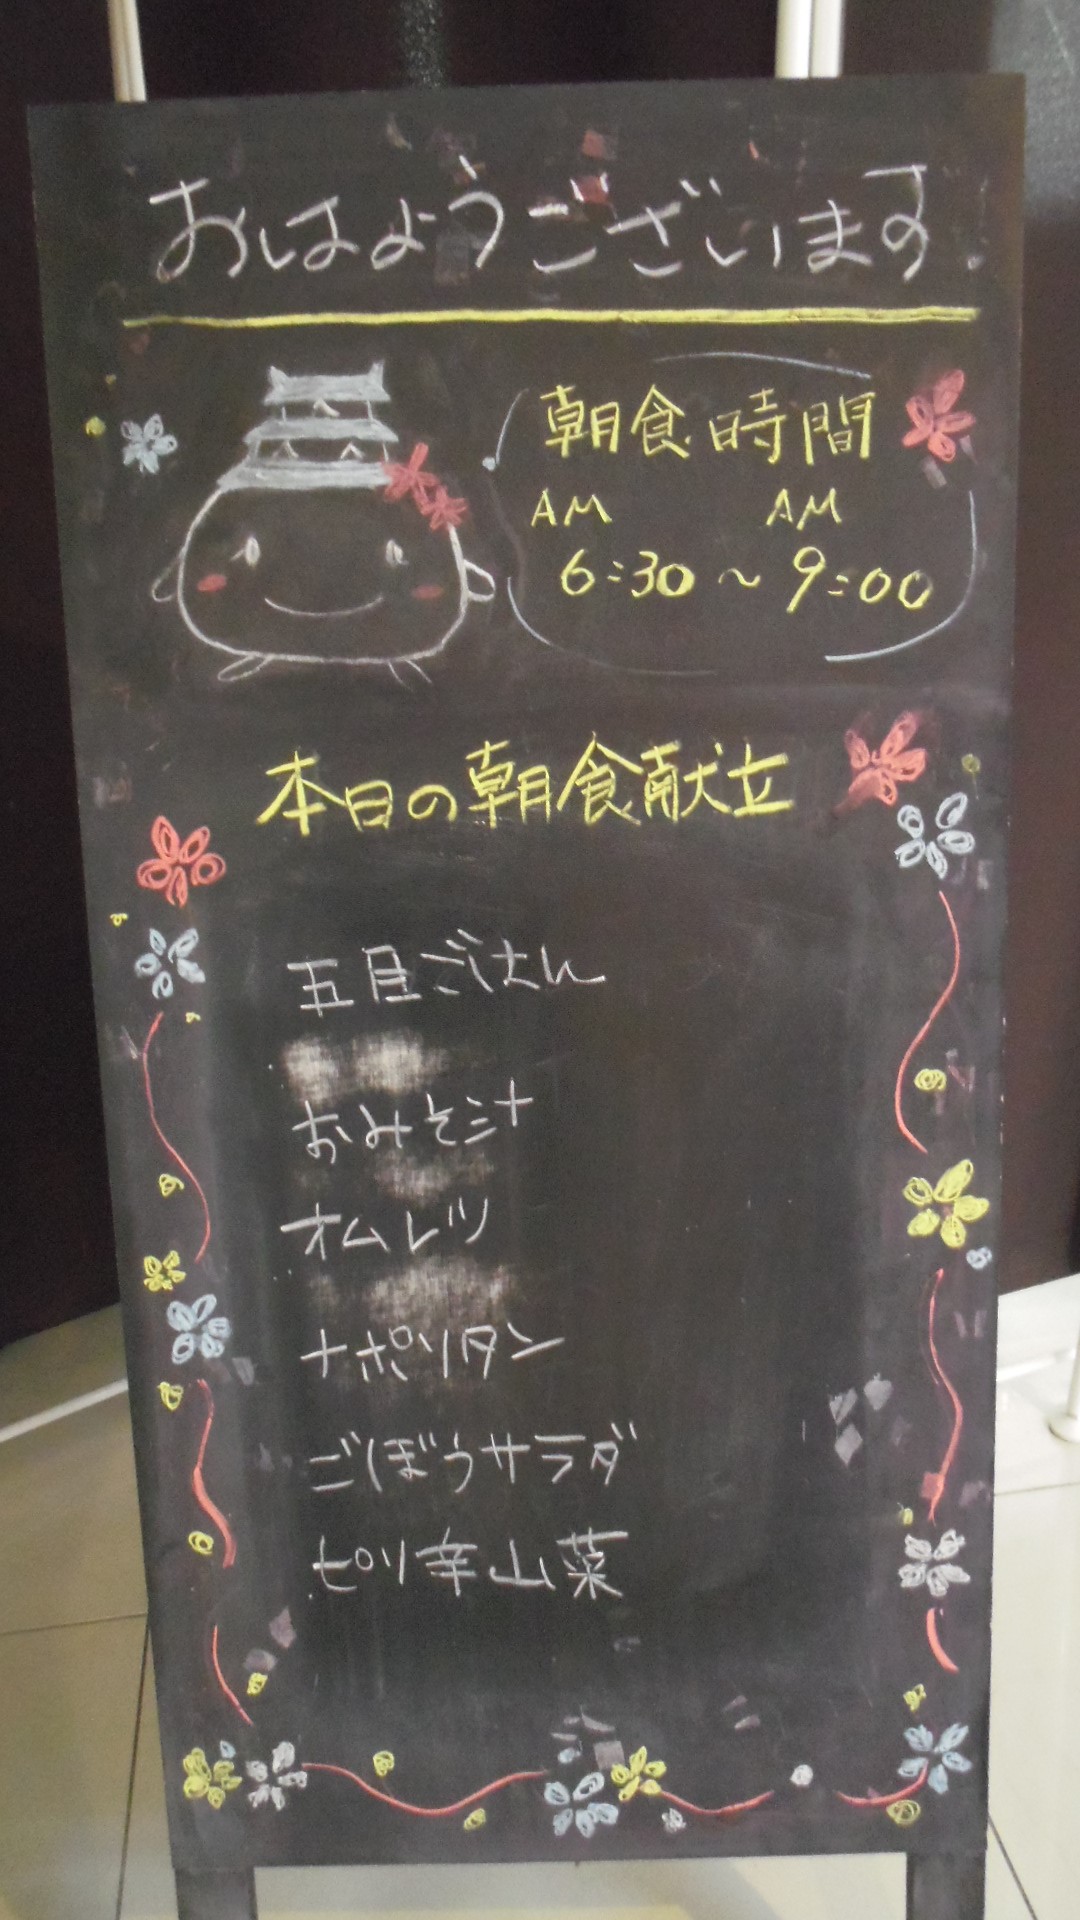 おはようございます。
朝食時間
AM AM
6:30～9:00
本日の朝食献立
五目ごはん
おみそ汁
オムレツ
ナポリタン
ごぼうサラダ
ピリ辛山菜